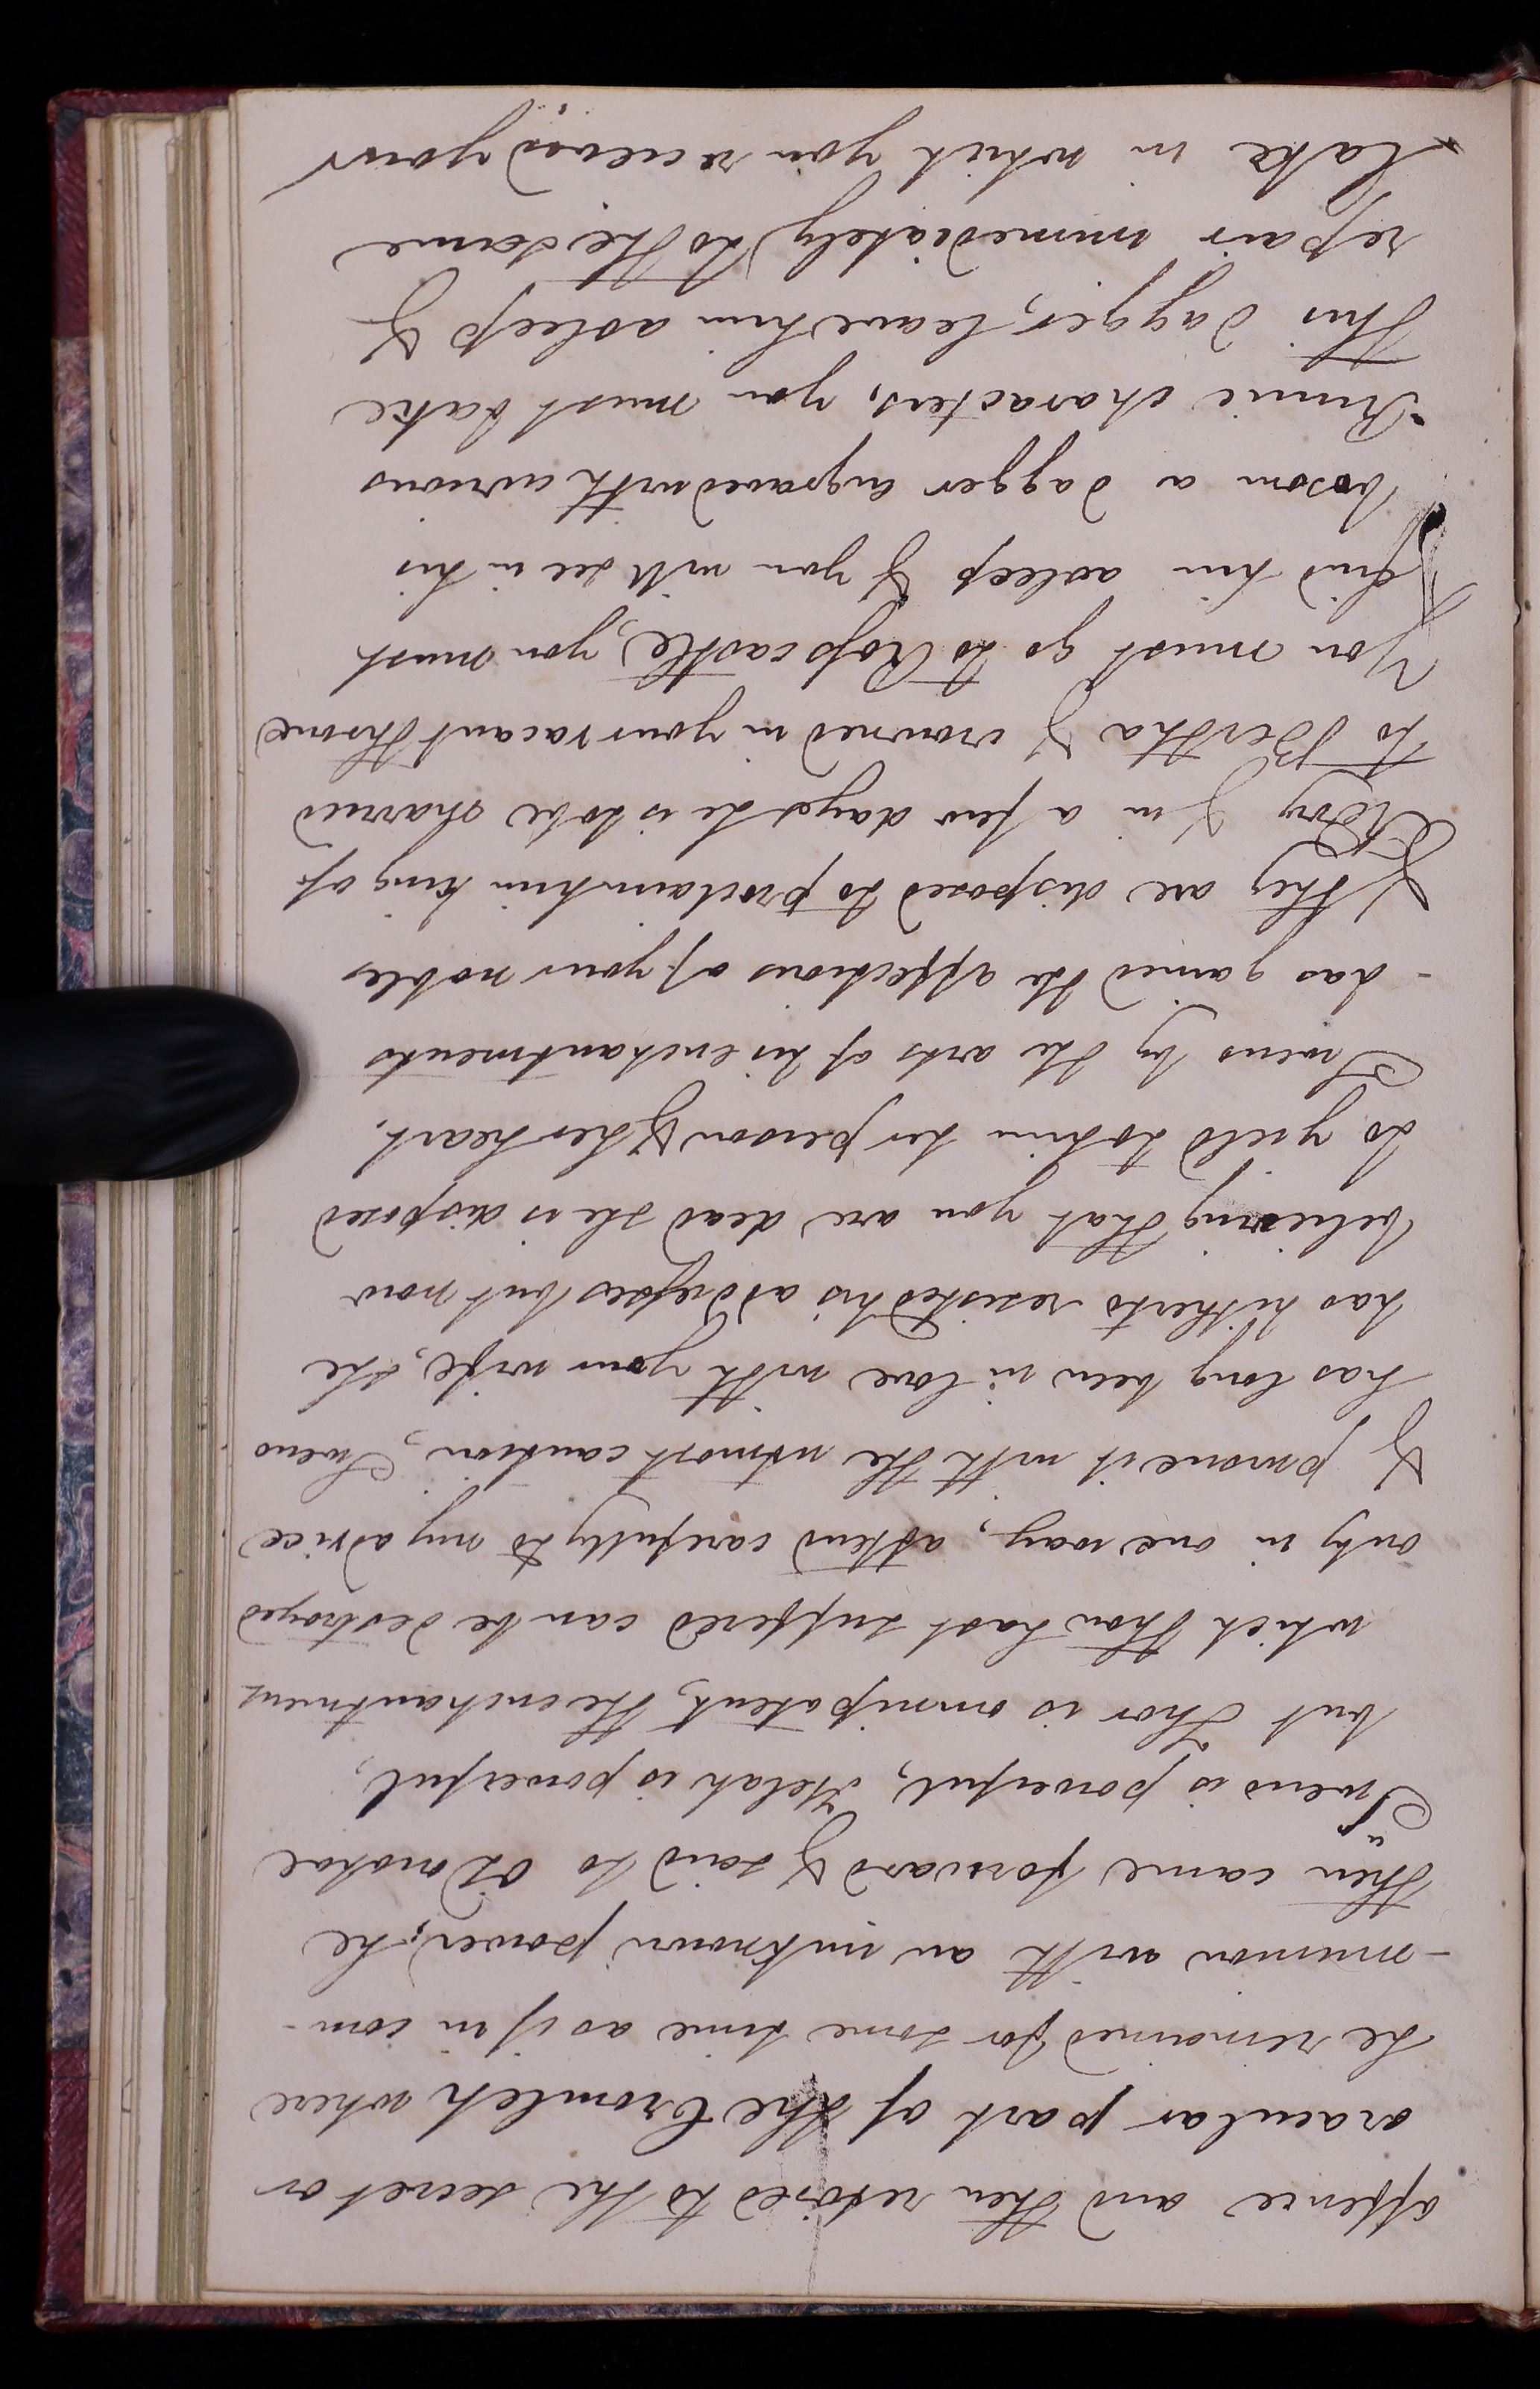 offence and then retired to the secret or
oracular part of the Cromleh where
he remained for some time as if in com-
-munion with an unknown power, he
then came forward & said to Odnostae
"Sweno is powerful, Helah is powerful,
but Thor is omnipotent, the enchantment
which thou hast suffered can be destroyed
only in one way, attend carefully to my advice
& pursue it with the utmost caution, Sweno
has long been in love with your wife, she
has hitherto resisted his addresses but now
believing that you are dead she is disposed
to yield to him her person & her heart.
Sweno by the arts of his enchantments
- has gained the affections of your nobles
& they are disposed to proclaim him king of
& in a few days he is to be married
to Bertha & crowned in your vacant throne
You must go to Ross castle, you must
find him asleep & you will see in his
bosom a dagger engraved with curious
Runic characters, you must take
this dagger, leave him asleep &
repair immediately to the same
lake in which you recieved your